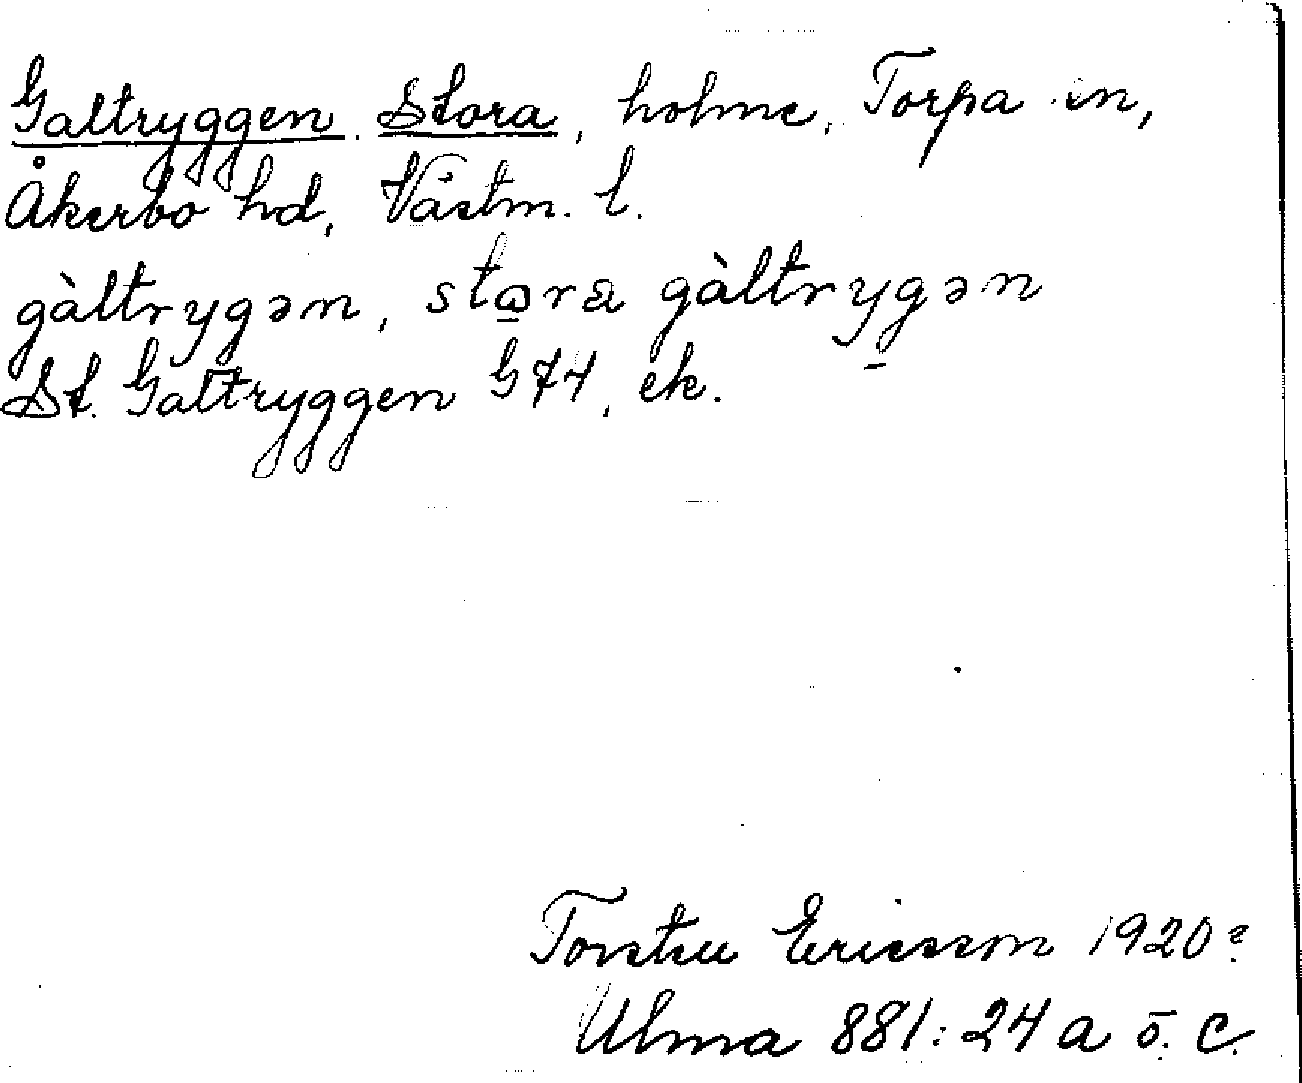 Galtryggen, Stora, holme, Torpa sn,
Åkerbo hd, Västm. l.
gàltrygən, stɷra gàltrygən
St. Galtryggen G 74, ek.
Torsten Ericsson 1920?
Ulma 881:24 a ö. C.